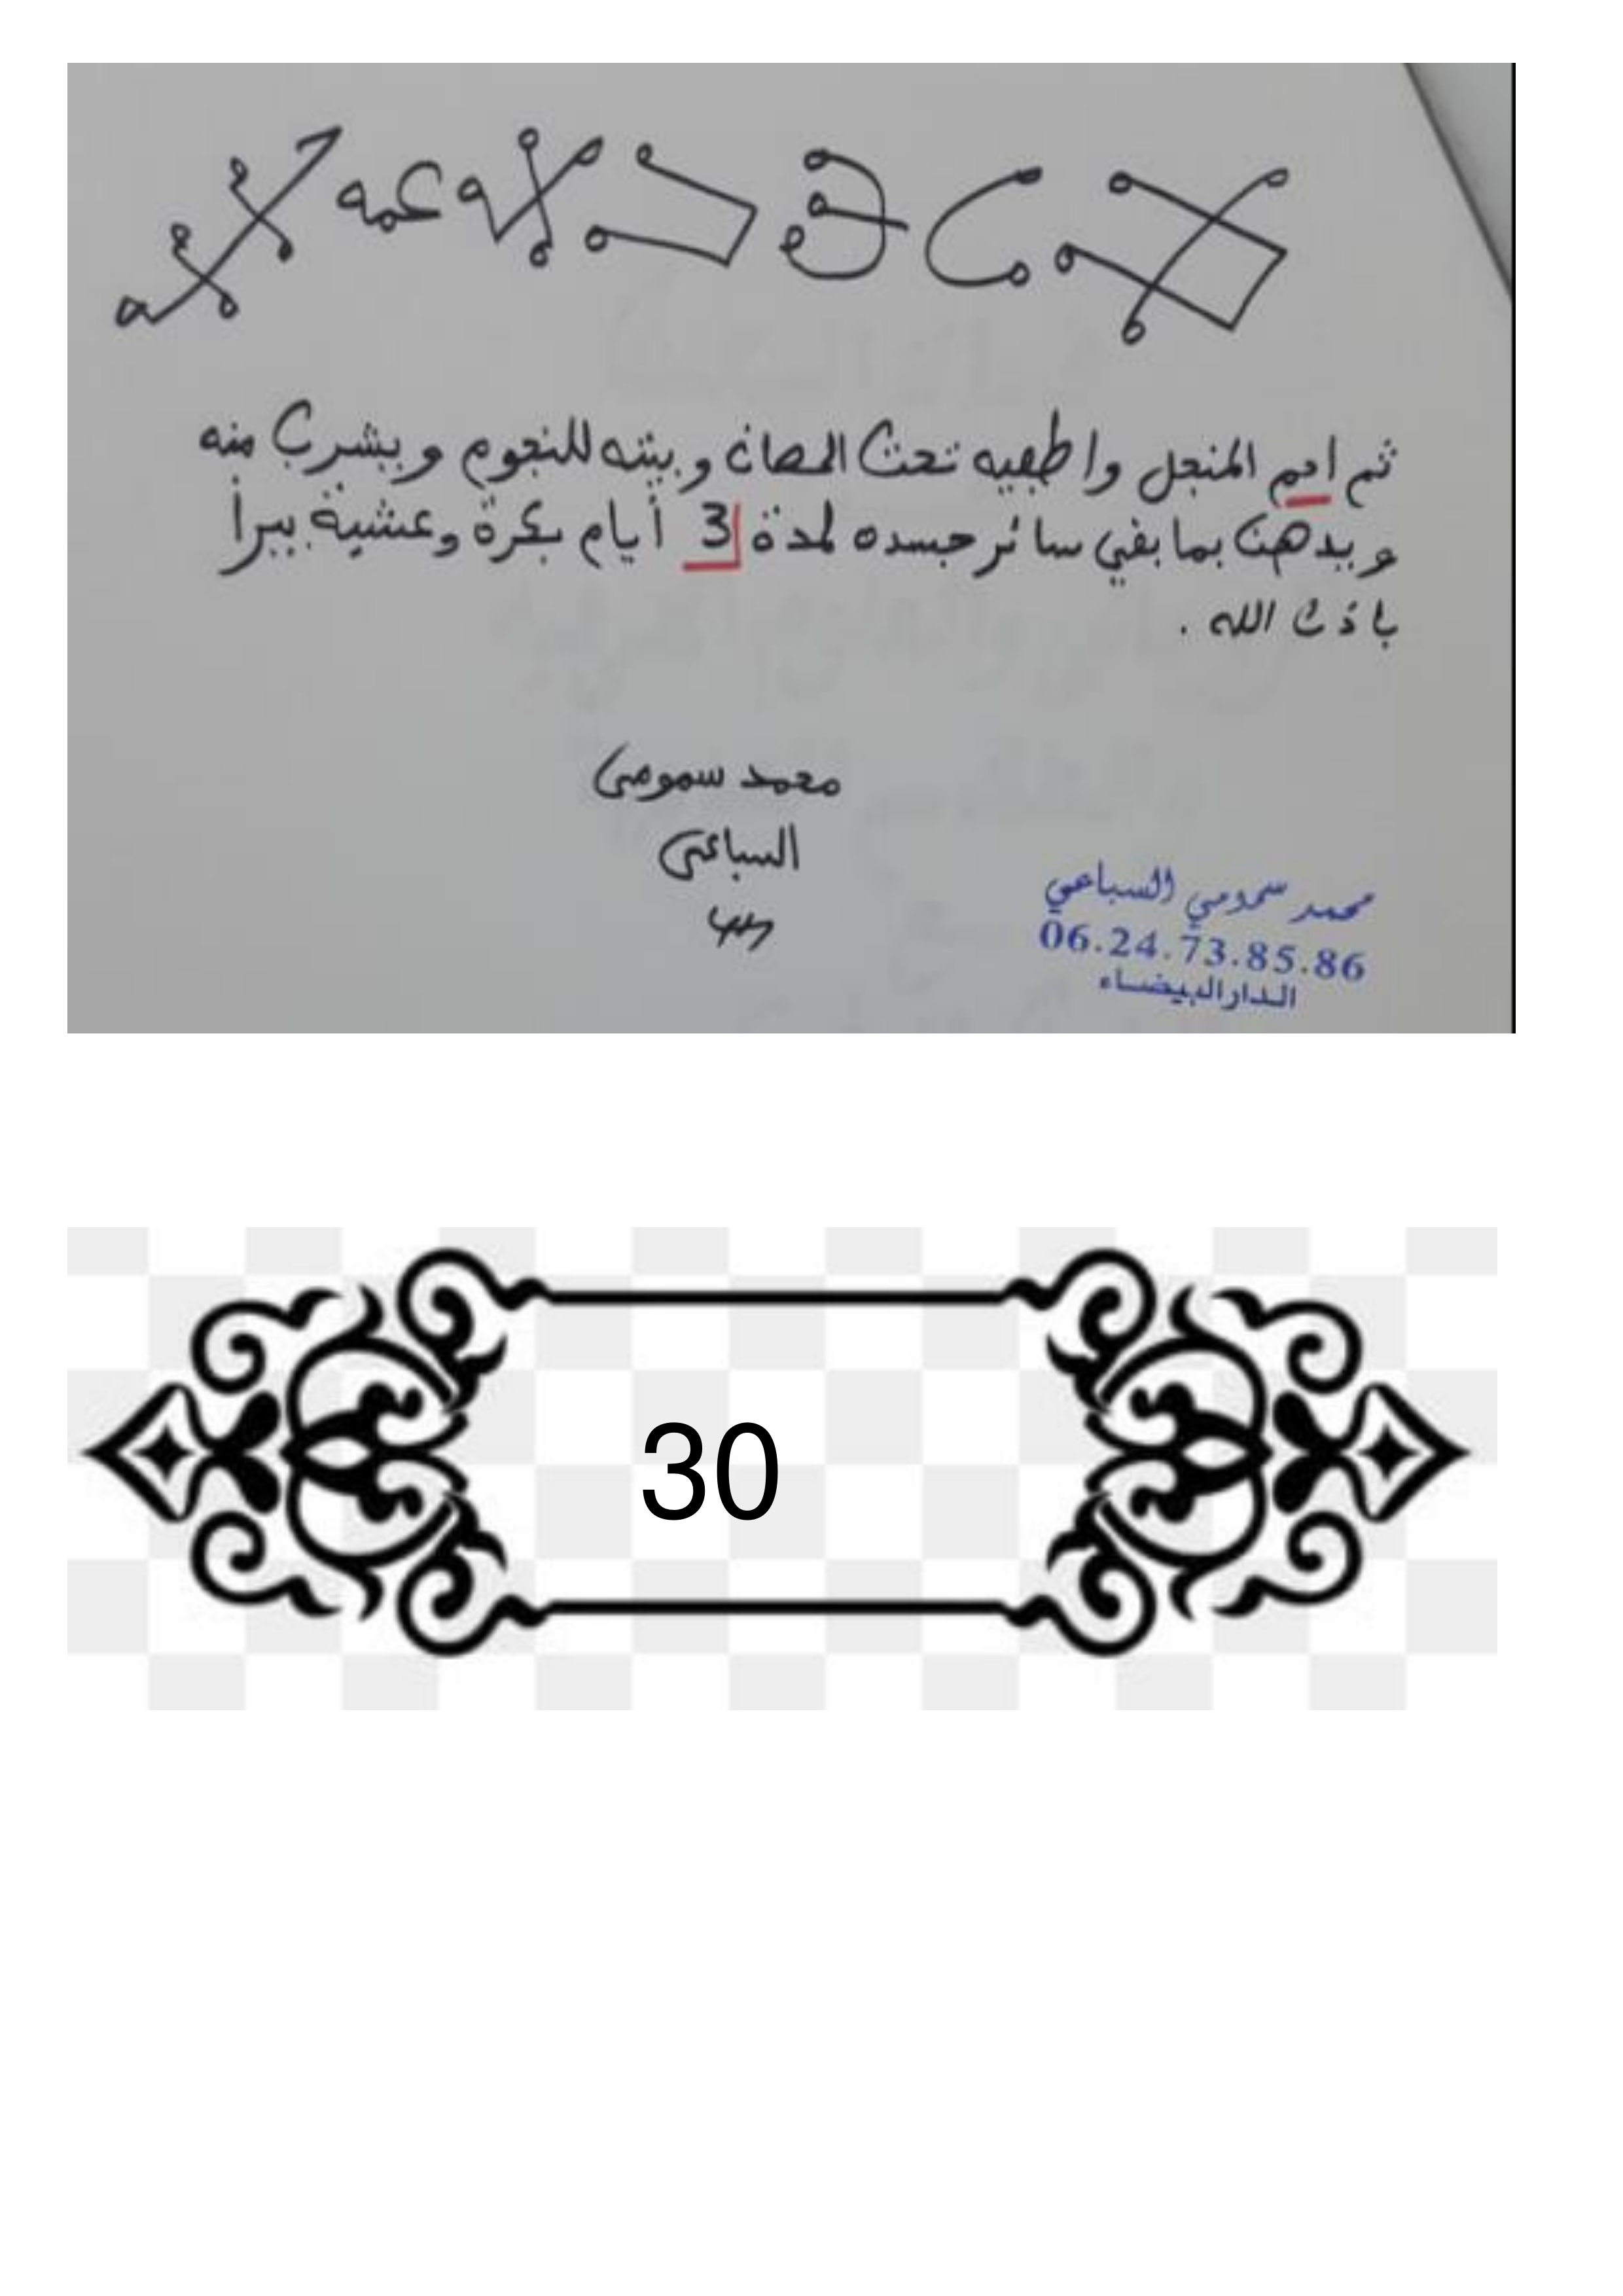 ثم احم المنجل واطفيه تحت الماء وبيته للنجوم ويشرب منه
ويدهن بما بقي سائر جسده لمدة 3 أيام بكرة وعشية يبرأ
باذن الله .
محمد سمومي
السباعي
محمد سمومي السباعي
06.24.73.85.86
الدار البيضاء
30